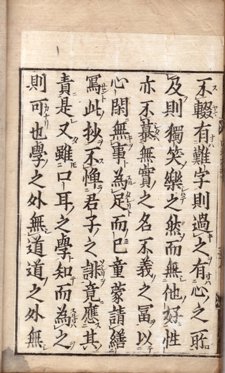 不輟有難字則過之有心之所
及則獨笑樂之然而無他好性
亦不慕無實之名不義之冨以
心閑無事為足而已童蒙請繕
寫此抄不憚君子之誹竟應其
責是又雖口耳之學知而為之
則可也學之外無道道之外無